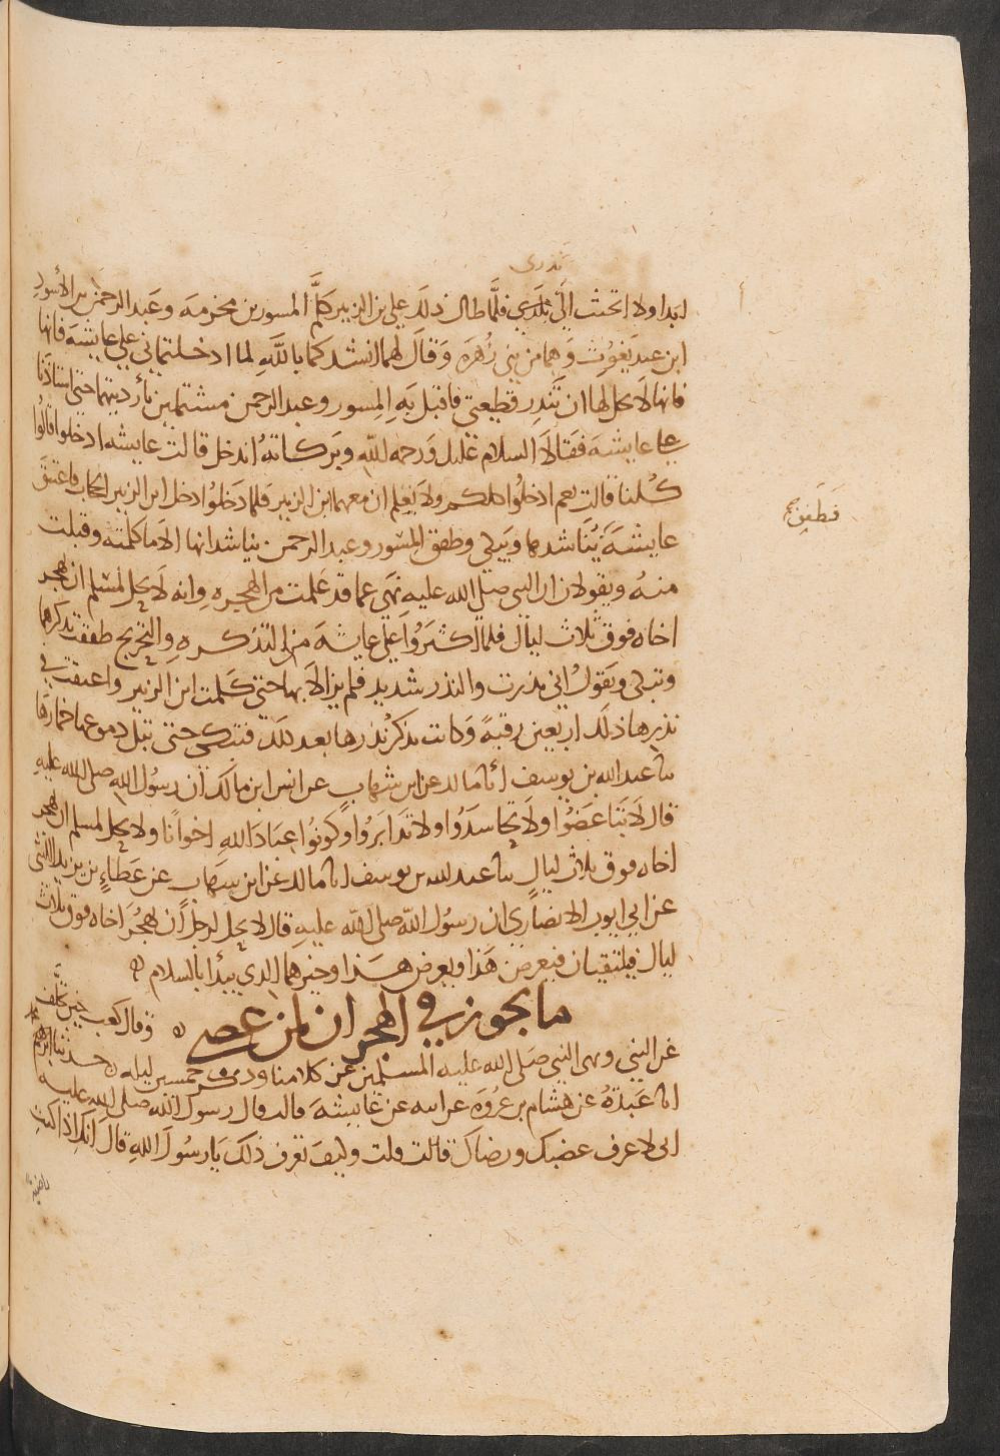 نذري
ابدا ولا اتحنث الى نذري فلما طال ذلك على بن الزبير كلَّم المسور بن مخرمة وعبد الرحمن بن الأسود
ابن عبد يغوث وهما من بني زهرة وقال لهما انشدكما بالله لما ادخلتماني على عايشة فانها
فانها لا يحل لها ان تنذر قطيعتي فاقبل به المسور وعبد الرحمن مشتملين بأرديتهما حتى استأذنا
على عايشة فقالا السلام عليك ورحمة الله وبركاته اندخل قالت عايشة ادخلوا قالوا
كلنا قالت نعم ادخلوا كلكم ولا تعلم ان معهما ابن الزبير فلما دخلوا دخل ابن الزبير الحجاب فاعتنق
فطفق
عايشة يناشدها ويبكي وطفق المسور وعبد الرحمن يناشدانها الا ما كلمته وقبلت
منه ويقولان ان النبي صلى الله عليه نهى عما قد علمت من الهجرة وانه لا يحل لمسلم ان يهجر
اخاه فوق ثلاث ليال فلما اكثروا على عايشة من التذكرة والتحريج طفقت تذكرهما
وتبكي وتقول اني نذرت والنذر شديد فلم يزالا بها حتى كلمت ابن الزبير واعتقت في
نذرها ذلك اربعين رقبة وكانت تذكر نذرها بعد ذلك فتبكي حتى تبل دموعها خمارها
نا عبد الله بن يوسف انا مالك عن ابن شهاب عن انس ابن مالك ان رسول الله صلى الله عليه
قال لا تباغضوا ولا تحاسدوا ولا تدابروا وكونوا عباد الله اخوانا ولا يحل لمسلم ان يهجر
اخاه فوق ثلاث ليال نا عبد الله بن يوسف انا مالك عن ابن شهاب عن عطاء بن يزيد الليثي
عن ابي ايوب الانصاري ان رسول الله صلى الله عليه قال لا يحل لرجل ان يهجر اخاه فوق ثلاث
ليال فيلتقيان فيعرض هذا ويعرض هذا وخيرهما الذي يبدأ بالسلام
ما يجوز في الهجر ان لمن عصى
وقال كعب حين تخلف
عن النبي ونهى النبي صلى الله عليه المسلمين عن كلامنا وذكر خمسين ليلة حدثنا
انا عبدة عن هشام بن عروة عن ابيه عن عايشة قالت قال رسول الله صلى الله عليه
اني لاعرف غضبك ورضاك قالت قلت وكيف تعرف ذلك يا رسول الله قال انك اذا كنت
راضية